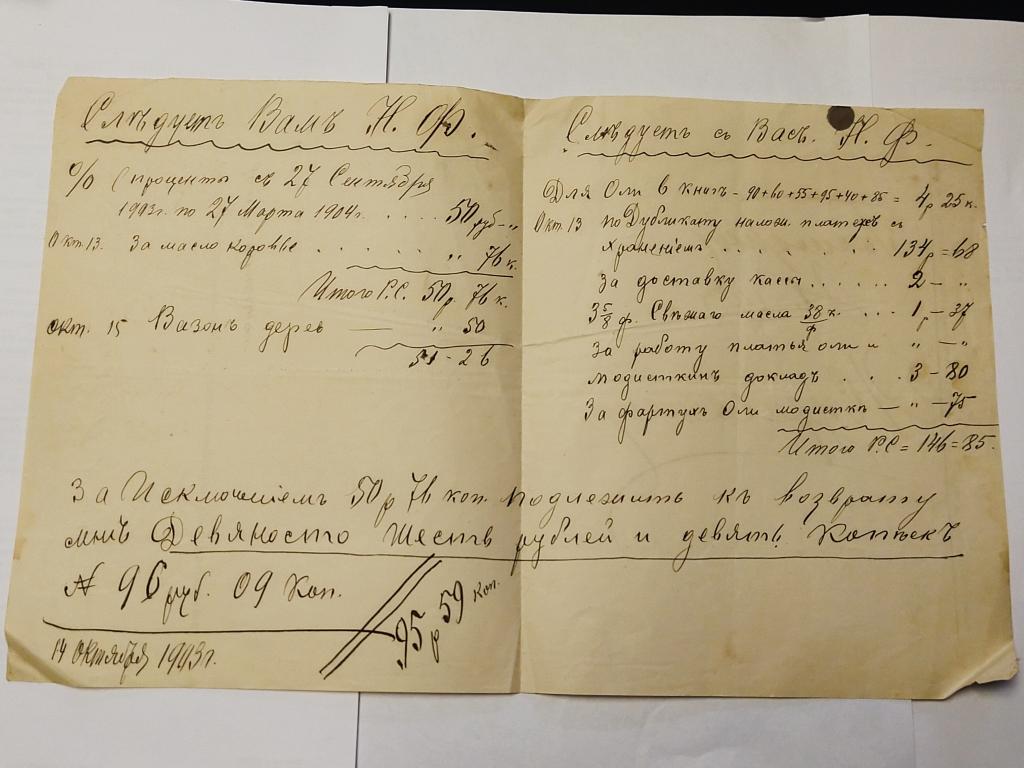 Слѣдуетъ Вамъ Н. Ф.
% (проценты съ 27 Сентября
1903г. по 27 Марта 1904г. . . . . 50 руб - "
Окт. 13. За масло коровье . . . . . . " 76 к.
Итого Р.С. 50 р. 76 к.
окт. 15 Вазонъ дерев — " 50
51 - 26
Слѣдуетъ съ Васъ. Н. Ф.
Для Оли в книгѣ - 90+60+55+95+40+85 = 4 р 25 к.
Окт. 13 по Дубликату налож. платежъ съ
Храненіемъ . . . . . . . 134 р = 68
За доставку кассы . . . . . . 2 - "
3 5/8 ф. Свѣжаго масла 38/ф к. . . . 1 р - 37
За работу платья оли и " - "
модисткинъ докладъ . . . 3 - 80
За фартухъ Оли модисткѣ — " - 75
Итого Р.С = 146 = 85.
За Исключеніемъ 50 р 76 коп. подлежитъ къ возврату
мнѣ Девяносто Шесть рублей и девять Копѣекъ
№ 96 руб. 09 Коп.
95 р 59 коп.
14 октября 1903 г.